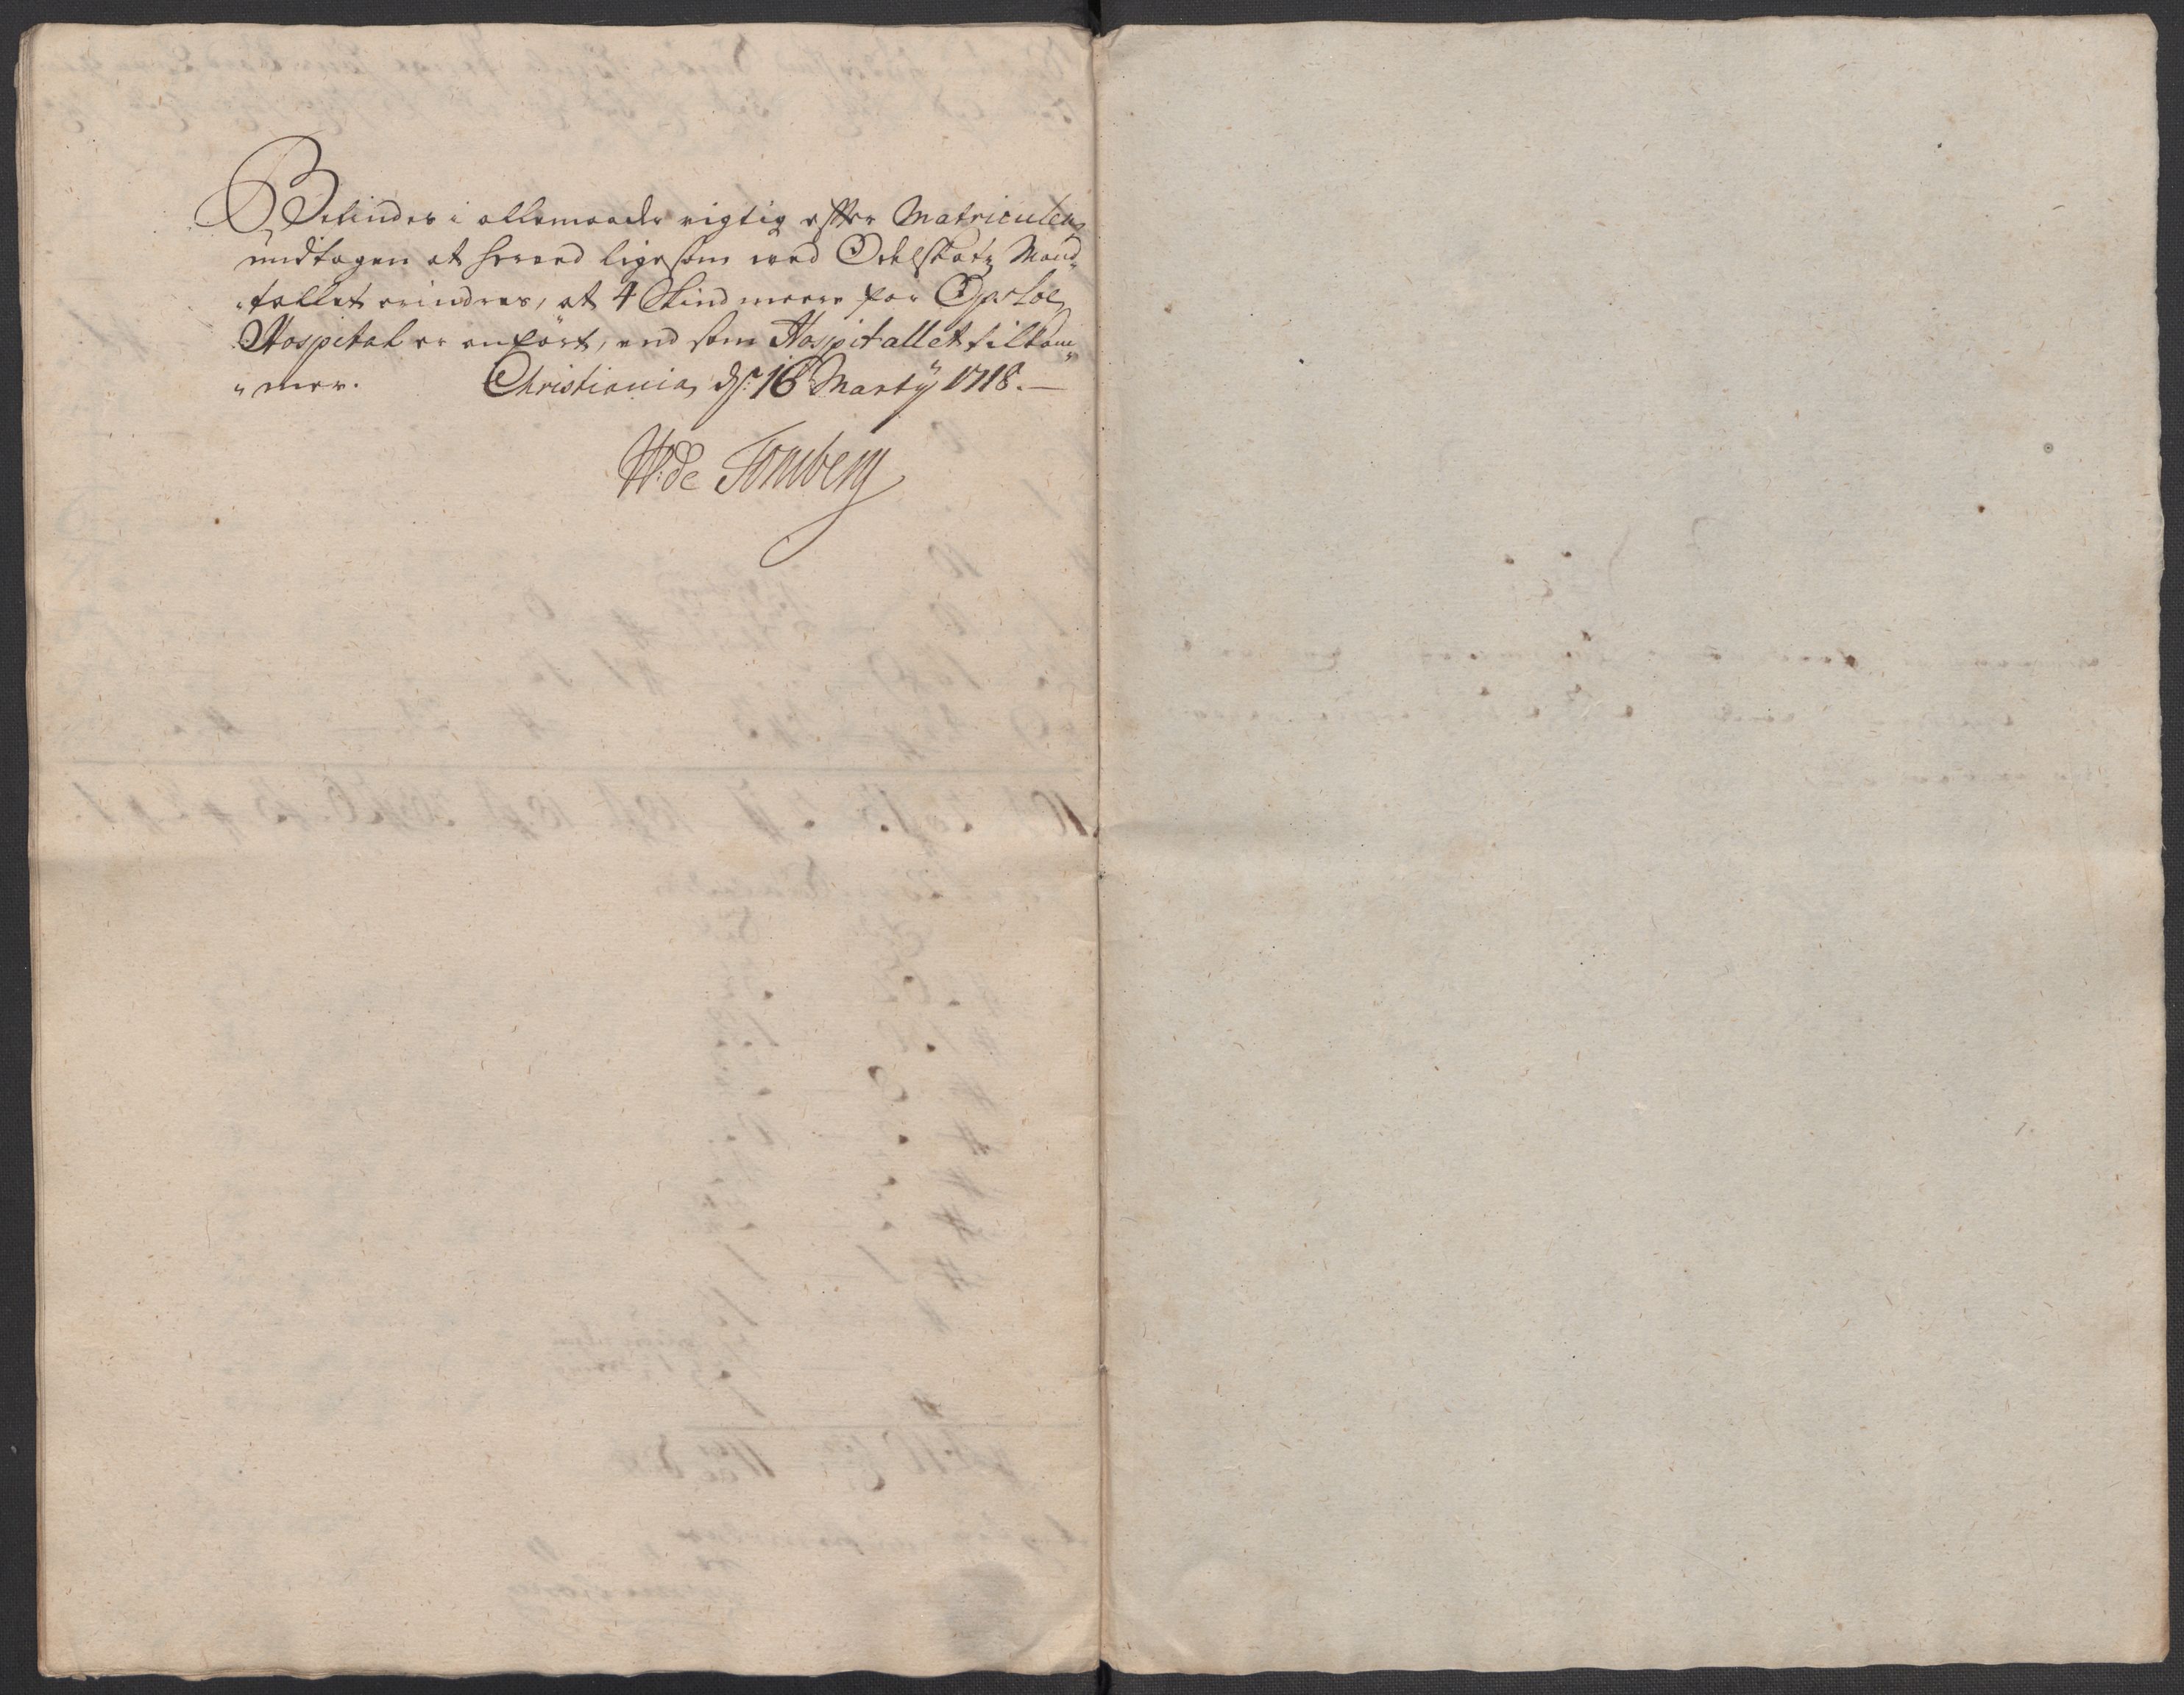 Befindes i allemaade rigtig efter Matriculen
undtagen at herved ligesom ved Odelskatz Mand-
-tallet erindres, at 4 Skind meere for Opsloe
Hospital er anført, end som Hospitallet tilkom-
-mer. Christiania ds: 16 Martÿ 1718.
W: de Tonsberg